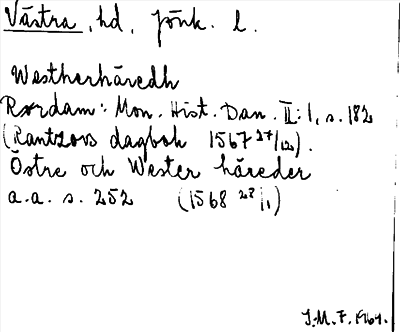 Västra, hd, Jönk. l.
Westherhäredh
Rørdam: Mon. Hist. Dan. II:1, s. 182
(Rantzovs dagbok 1567 27/12).
Östre och Wester häreder
a.a. s. 252 (1568 28/1)
J.M.F. 1964.